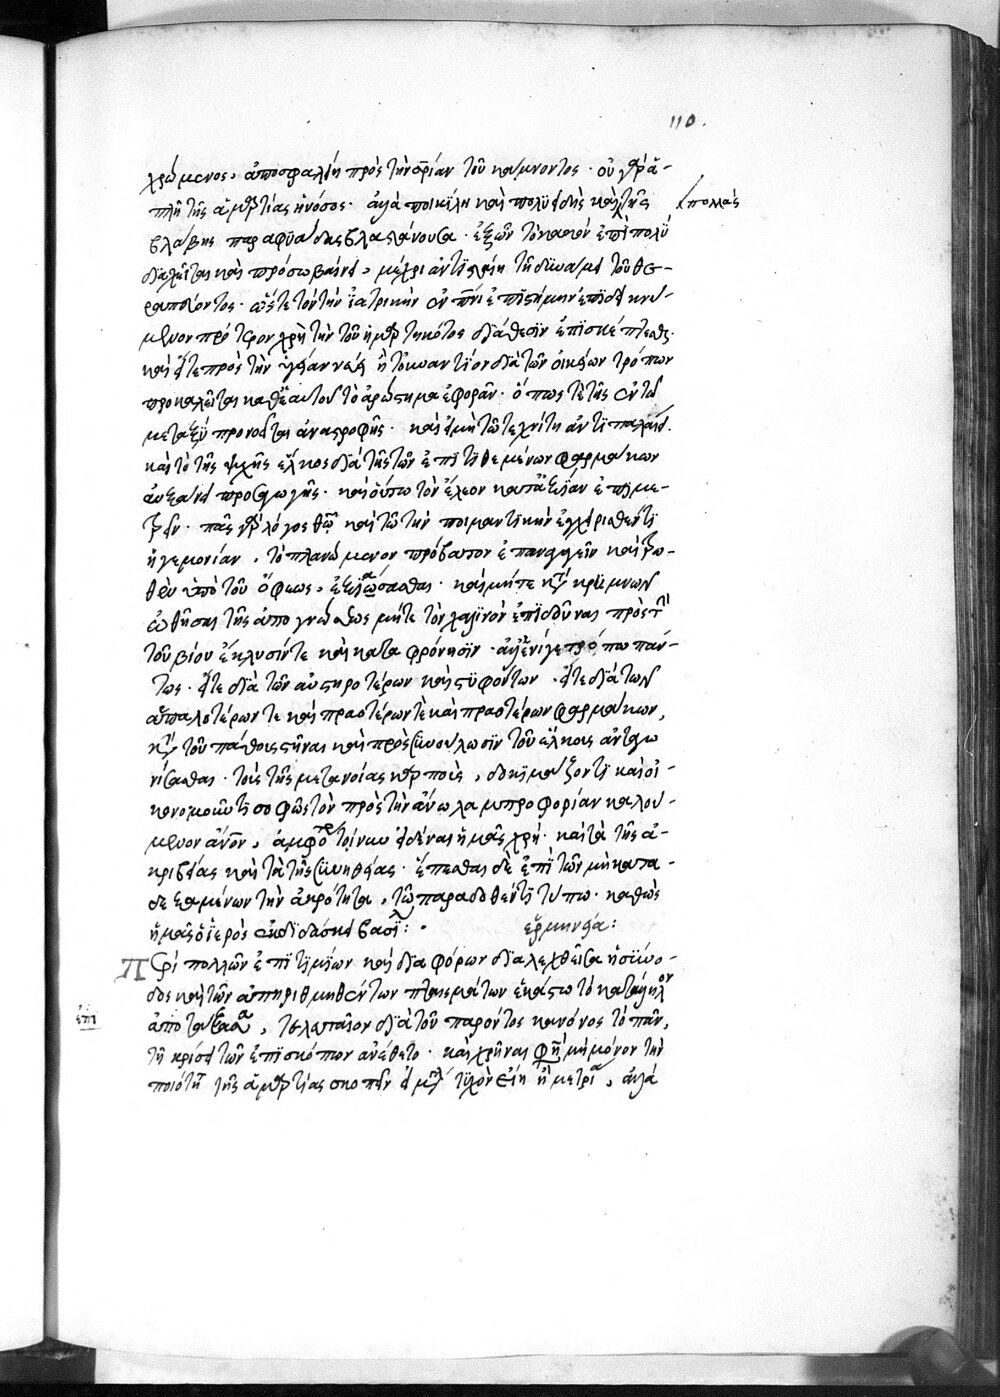 χρώμενος, ἀποσφαλείη πρὸς τὴν σ̅ρίαν τοῦ κάμνοντος· οὐ γὰρ ἁ-
πλῆ τῆς ἁμαρτίας ἡ νόσος· ἀλλὰ ποικίλη καὶ πολυειδὴς καὶ τῆς
πολλὰς
βλάβης παραφυάδας βλαστάνουσα· ἐξ ὧν τὸ κακὸν ἐπὶ πολὺ
διαχεῖται καὶ πρόσω βαίνει, μέχρι ἂν σταίη τῇ δυνάμει τοῦ θε-
ραπεύοντος· ὥστε τὸν τὴν ἰατρικὴν ἐν πνι ἐπιστήμην ἐπιδεικνύ-
μενον πρότερον χρὴ τὴν τοῦ ἡμαρτηκότος διάθεσιν ἐπισκέπτεσθαι·
καὶ εἴτε πρὸς τὴν ὑγείαν νεύει ἢ τοὐναντίον διὰ τῶν οἰκείων τρόπων
προκαλεῖται καθ' ἑαυτοῦ τὸ ἀρώστημα ἐφορᾶν· ὅπως τὲ τῆς ἐν τῷ
μεταξὺ προνοεῖται ἀναστροφῆς· καὶ εἰ μὴ τῷ τεχνίτῃ ἀντιπαλαίει·
καὶ τὸ τῆς ψυχῆς ἕλκος διὰ τῆς τῶν ἐπιτιθεμένων φαρμάκων
αὐξάνει προσαγωγῆς· καὶ οὕτω τὸν ἔλεον κατ' ἀξίαν ἐπιμε-
τρεῖν· πᾶς γὰρ λόγος θῶ καὶ τῷ τὴν ποιμαντικὴν ἐγχειρισθέντι
ἡγεμονίαν, τὸ πλανώμενον πρόβατον ἐπαναγαγεῖν καὶ τρω-
θὲν ὑπὸ τοῦ ὄφεως, ἐξιάσασθαι· καὶ μήτε κατὰ κρημνῶν
ὠθῆσαι τῆς ἀπογνώσεως μήτε τὸν χαλινὸν ἐπιδοῦναι πρὸς τὴν
τοῦ βίου ἔκλυσίν τε καὶ καταφρόνησιν· ἀλλ' ἑνί γε τρόπω πάν-
τως· εἴτε διὰ τῶν αὐστηροτέρων καὶ στυφόντων· εἴτε διὰ τῶν
ἁπαλοτέρων τε καὶ πραοτέρων τὲ καὶ πραοτέρων φαρμάκων,
κατὰ τοῦ πάθους στῆναι καὶ πρὸς συνούλωσιν τοῦ ἕλκους ἀνταγω
νίσασθαι· τοὺς τῆς μετανοίας καρποὺς, δοκιμάζοντι καὶ οἰ-
κονομοῦντι σοφῶς τὸν πρὸς τὴν ἄνω λαμπροφορίαν καλού-
μενον ἄν̅ο̅ν̅, ἀμφότερα τοίνυν εἰδέναι ἡμᾶς χρή· καὶ τὰ τῆς ἀ-
κριβείας καὶ τὰ τῆς συνηθείας· ἕπεσθαι δὲ ἐπὶ τῶν μὴ κατα-
δεξαμένων τὴν ἀκρότητα, τῷ παραδοθέντι τύπω· καθὼς
ἡμᾶς ὁ ἱερὸς ἐκδιδάσκει βασίλ:· ἑρμηνεία:
Περὶ πολλῶν ἐπιτιμίων καὶ διαφόρων διαλεχθεῖσα ἡ σύνο-
δος καὶ τῶν ἀπηριθμηθέντων πταισμάτων ἑκάστω τὸ κατάλληλον
ἐπι
ἀποτάξασα, τελευταῖον διὰ τοῦ παρόντος κανόνος τὸ πᾶν,
τῇ κρίσει τῶν ἐπισκόπων ἀνέθετο· καὶ χρῆναι φη μὴ μόνον τὴν
ποιότητα τῆς ἁμαρτίας σκοπεῖν εἰ τυχὸν εἴη ἢ μετρία, ἀλλὰ